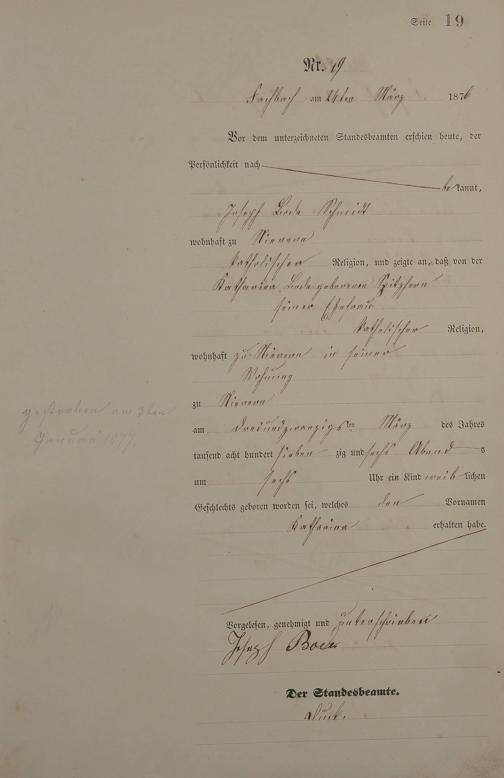 Seite 19
Nr. 19
Fachbach am 24ten März 1876
Vor dem unterzeichneten Standesbeamten erschien heute, der
Persönlichkeit nach
be kannt,
Joseph Bode Schmidt
wohnhaft zu Nievern
katholischer Religion, und zeigte an, daß von der
Katharina Bode geborenen
seiner Ehefrau
katholischer Religion,
wohnhaft zu Nievern in seiner
Wohnung
zu Nievern
am dreiundzwanzigsten März des Jahres
tausend acht hundert sieben zig und sechs Abend s
um sechs Uhr ein Kind weib lichen
Geschlechts geboren worden sei, welches den Vornamen
Katharina erhalten habe.
gestorben am 3ten
Januar 1877.
Vorgelesen, genehmigt und unterschrieben
Joseph Bode
Der Standesbeamte.